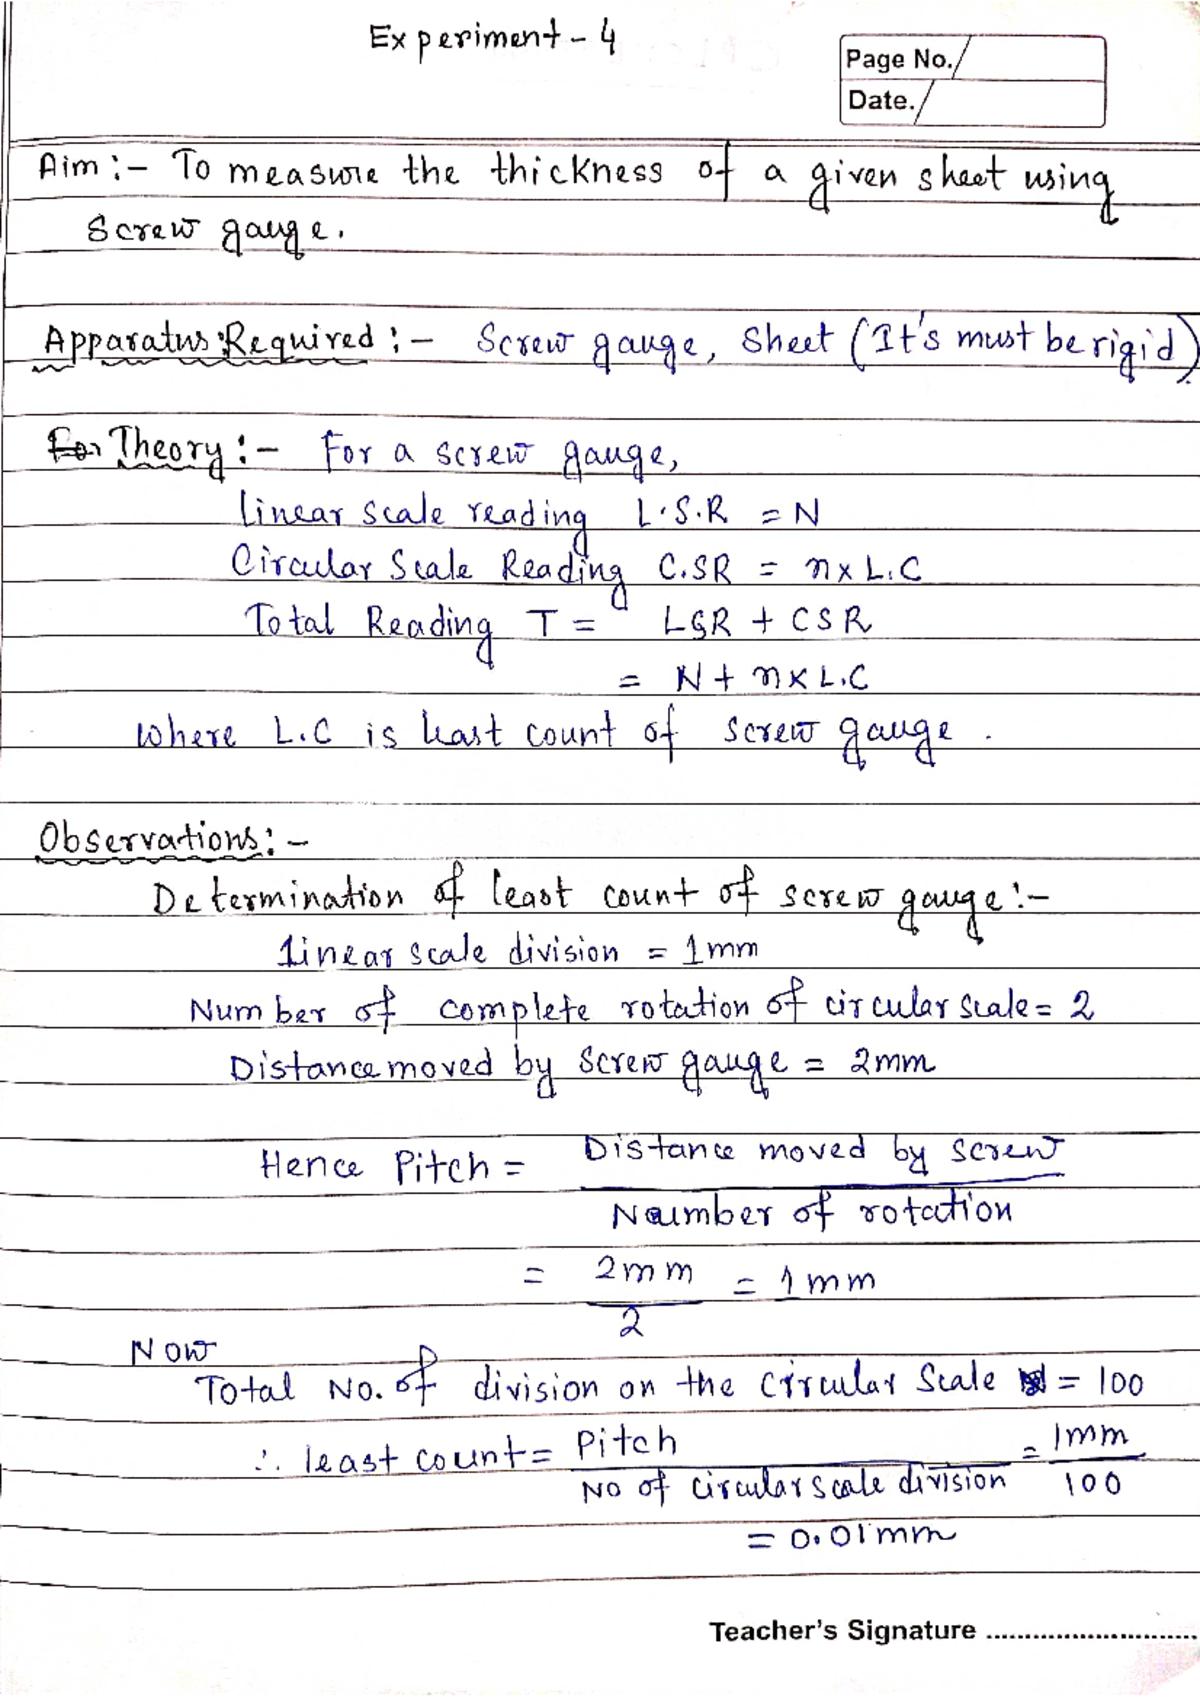 Experiment - 4
Page No.
Date.
Aim :- To measure the thickness of a given sheet using
Screw gauge.
Apparatus Required :- Screw gauge, Sheet (It's must be rigid).
For Theory :- For a screw gauge,
Linear scale reading L.S.R = N
Circular Scale Reading C.SR = n x L.C
Total Reading T = LSR + CSR
= N + n x L.C
where L.C is least count of screw gauge.
Observations :-
Determination of least count of screw gauge :-
Linear scale division = 1mm
Number of complete rotation of circular scale = 2
Distance moved by screw gauge = 2mm
Hence Pitch = Distance moved by screw
Number of rotation
= 2mm = 1mm
2
Now
Total No. of division on the circular Scale = 100
∴ least count = Pitch = 1mm
No of circular scale division 100
= 0.01mm
Teacher's Signature ............................